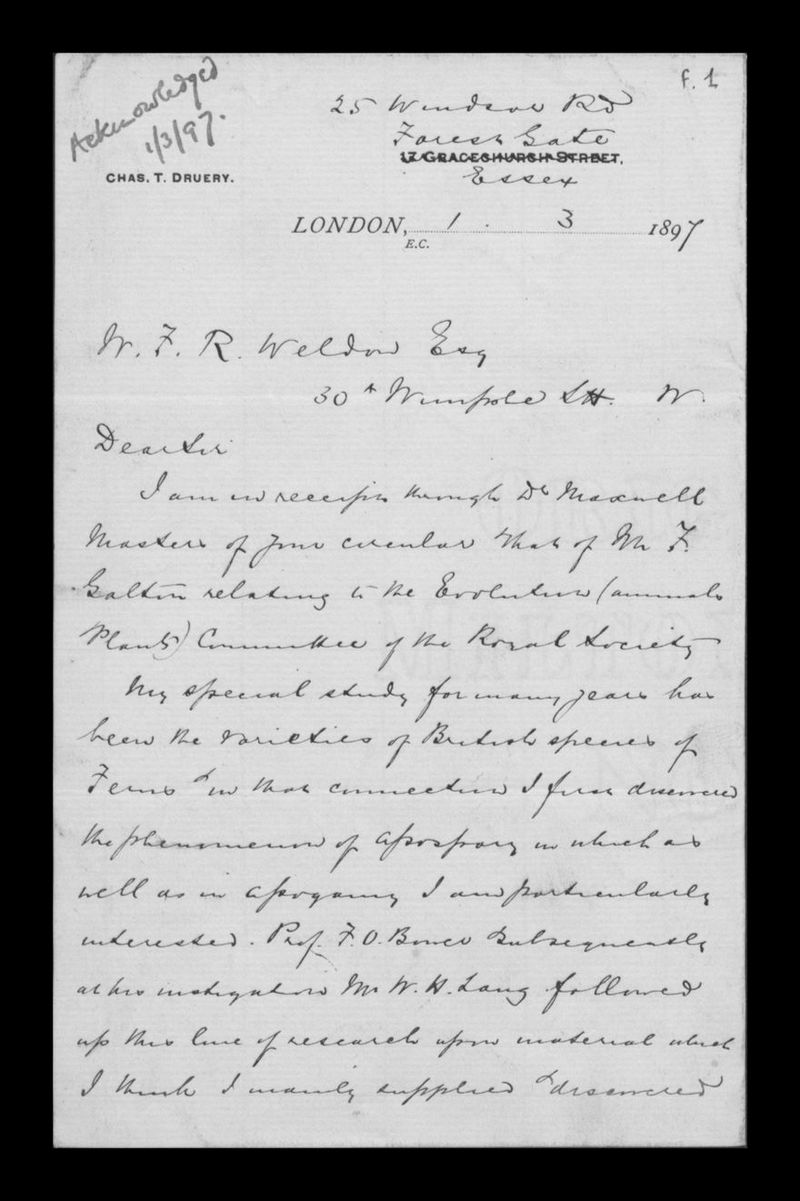 f. 1
Acknowledged
1/3/97.
CHAS. T. DRUERY.
25 Windsor Rd
Forest Gate
17 GRACECHURCH STREET,
Essex
LONDON, 1 . 3 1897
E.C.
W. F. R. Weldon Esq
30A Wimpole St. W.
Dear Sir
I am in receipt through Dr Maxwell
Masters of your circular & that of Mr F.
Galton relating to the Evolution (animals
Plants) Committee of the Royal Society
My special study for many years has
been the varieties of British species of
Ferns & in that connection I first discovered
the phenomenon of apospory in which as
well as in apogamy I am particularly
interested. Prof. F. O. Bower & subsequently
at his instigation Mr W. H. Lang followed
up this line of research upon material which
I think I mainly supplied & discovered